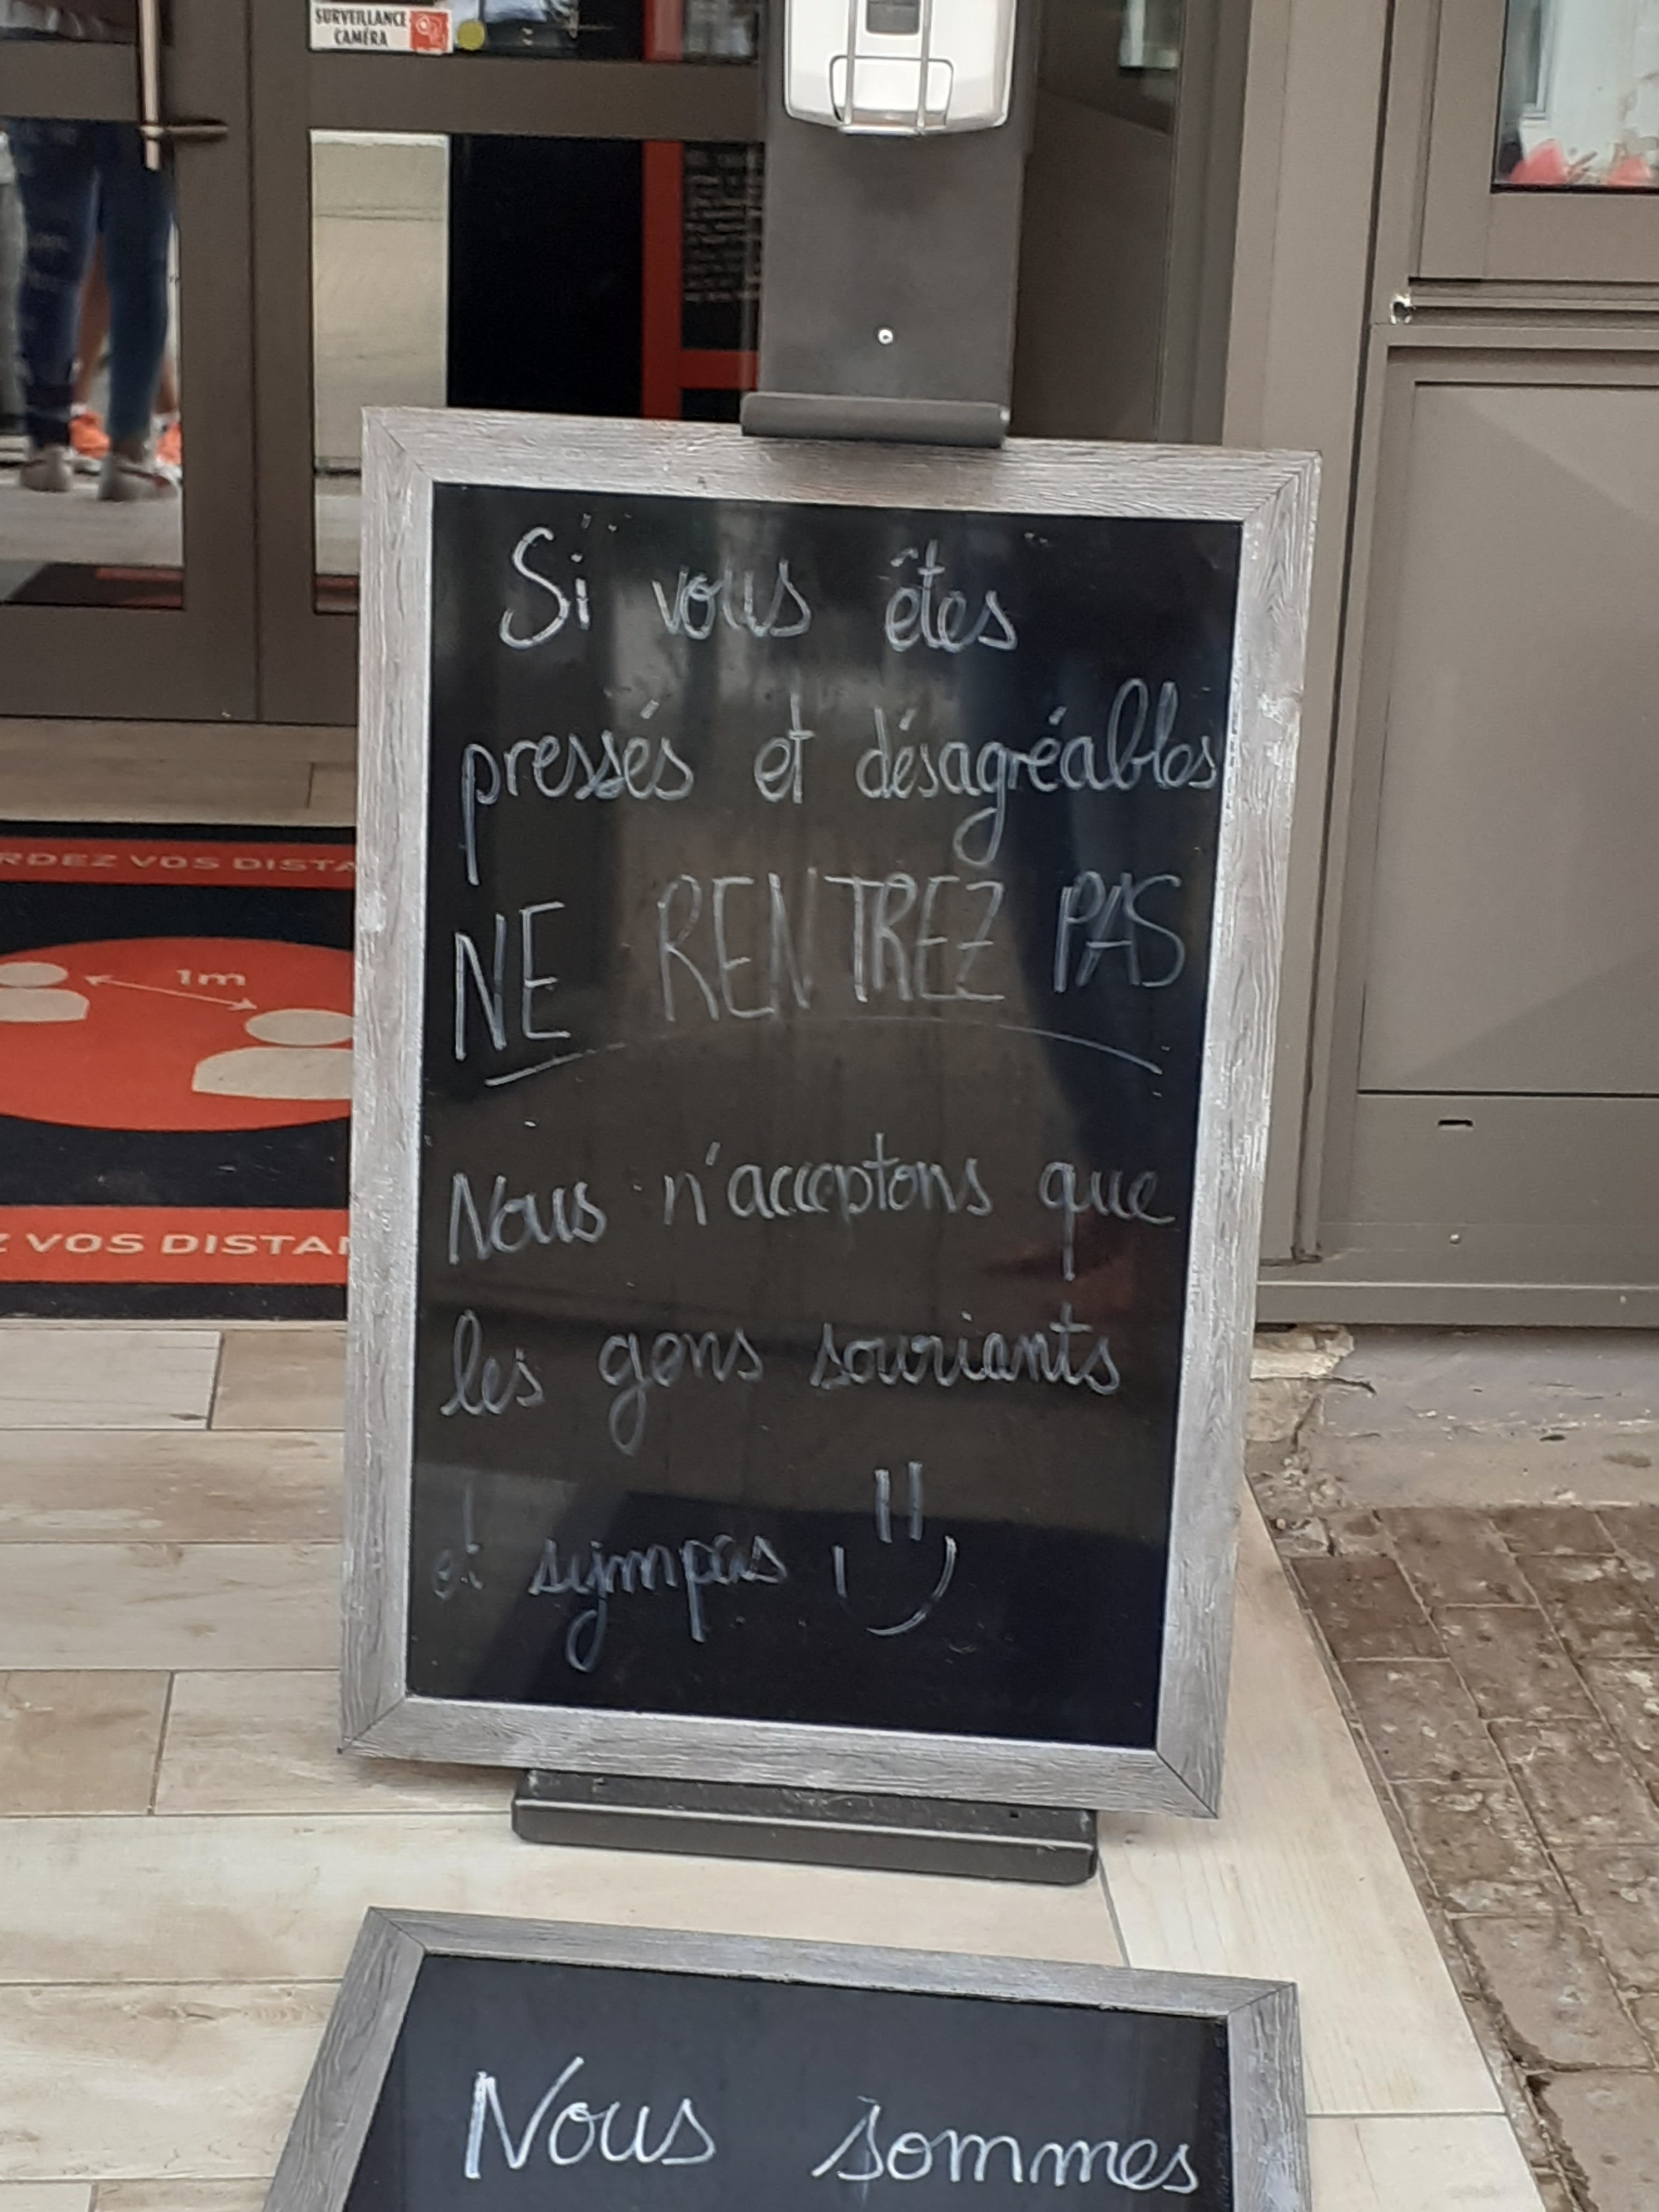 SURVEILLANCE
CAMÉRA
Si vous êtes
pressés et désagréables
NE RENTREZ PAS
Nous n'acceptons que
les gens souriants
et sympas
RDEZ VOS DISTA
1m
Z VOS DISTAN
Nous sommes